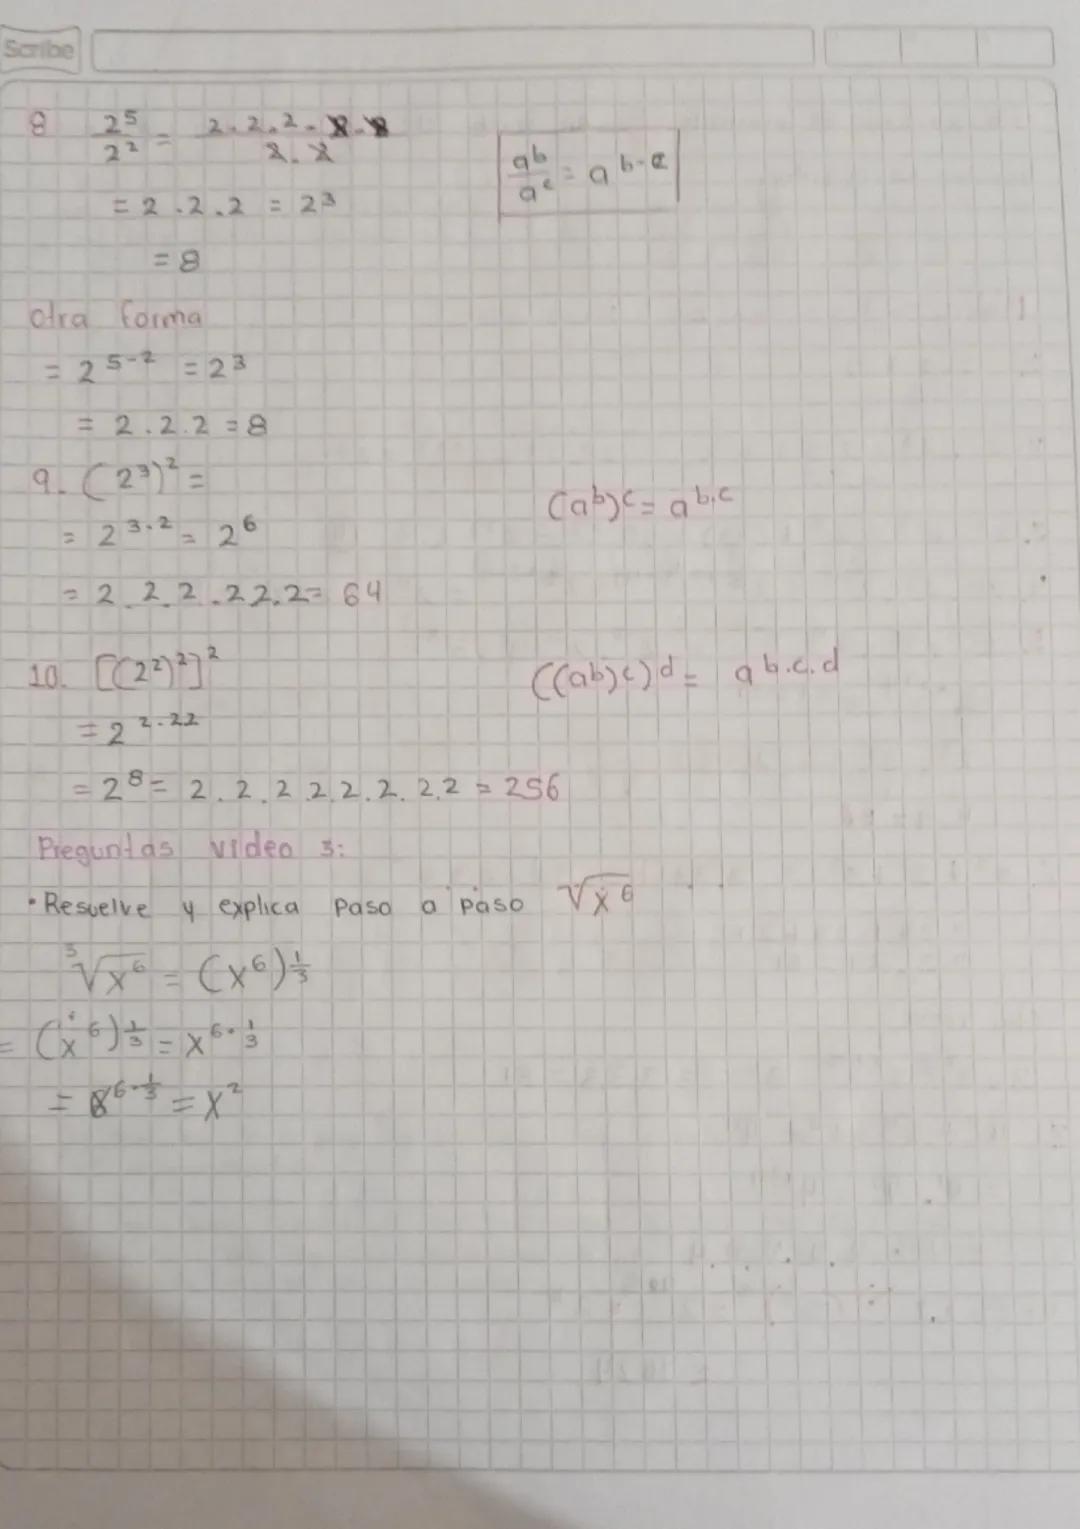 Scribe
8 2⁵/2² = 2.2.2.2.2 / 2.2
aᵇ/aᶜ = aᵇ⁻ᶜ
= 2.2.2 = 2³
= 8
otra forma
= 2⁵⁻² = 2³
= 2.2.2 = 8
9. (2³)² =
(aᵇ)ᶜ = aᵇ·ᶜ
= 2³·² = 2⁶
= 2.2.2.22.2 = 64
10. [(2²)²]²
((aᵇ)ᶜ)ᵈ = aᵇ·ᶜ·ᵈ
= 2²·²²
= 2⁸ = 2.2.2 2.2.2.2.2 = 256
Preguntas video 3:
· Resuelve y explica paso a paso √x⁶
³√x⁶ = (x⁶)^1/3
= (x⁶)^1/3 = x^6·1/3
= x^6·1/3 = x²